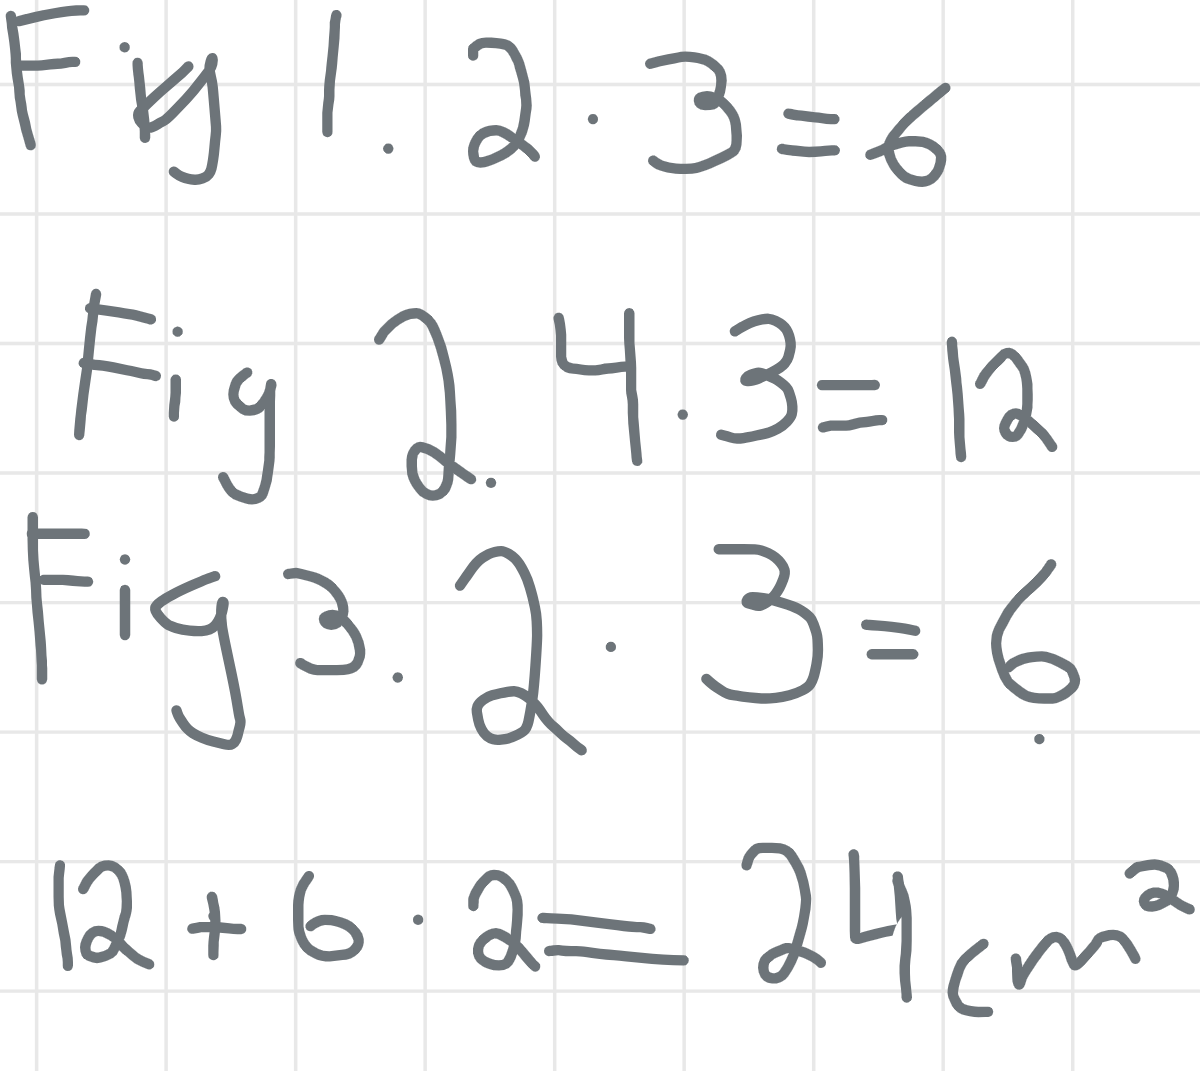 Fig 1. 2 · 3 = 6
Fig 2. 4 · 3 = 12
Fig 3. 2 · 3 = 6.
12 + 6 · 2 = 24 cm²